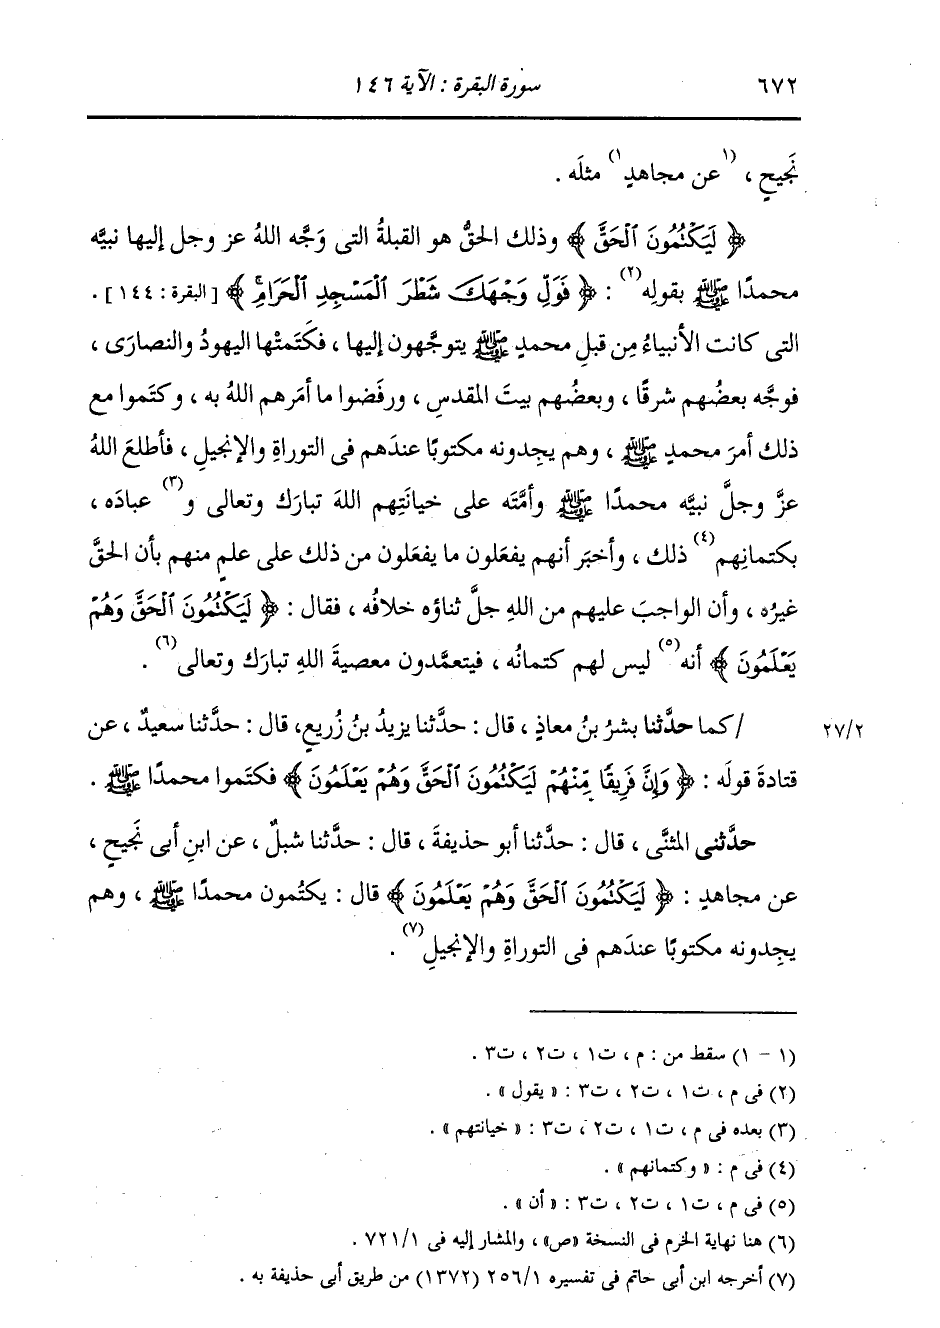 ٦٧٢ سورة البقرة : الآية ١٤٦
نَجيحٍ ، (١عن مجاهدٍ١) مثلَه .
﴿ لَيَكْتُمُونَ ٱلْحَقَّ ﴾ وذلك الحقُّ هو القبلةُ التى وَجَّه اللهُ عز وجل إليها نبيَّه
محمدًا ﷺ بقولِه(٢) : ﴿ فَوَلِّ وَجْهَكَ شَطْرَ ٱلْمَسْجِدِ ٱلْحَرَامِ ﴾ [ البقرة : ١٤٤ ] .
التى كانت الأنبياءُ مِن قبلِ محمدٍ ﷺ يتوجَّهون إليها ، فكَتَمتْها اليهودُ والنصارَى ،
فوجَّه بعضُهم شرقًا ، وبعضُهم بيتَ المقدسِ ، ورفَضوا ما أمَرهم اللهُ به ، وكتَموا مع
ذلك أمرَ محمدٍ ﷺ ، وهم يجِدونه مكتوبًا عندَهم فى التوراةِ والإنجيلِ ، فأطلعَ اللهُ
عزَّ وجلَّ نبيَّه محمدًا ﷺ وأمَّتَه على خيانَتِهم اللهَ تبارَك وتعالى و(٣) عبادَه ،
بكتمانِهم(٤) ذلك ، وأخبَر أنهم يفعَلون ما يفعَلون من ذلك على علمٍ منهم بأن الحقَّ
غيرُه ، وأن الواجبَ عليهم من اللهِ جلَّ ثناؤه خلافُه ، فقال : ﴿ لَيَكْتُمُونَ ٱلْحَقَّ وَهُمْ
يَعْلَمُونَ ﴾ أنه(٥) ليس لهم كتمانُه ، فيتعمَّدون معصيةَ اللهِ تبارَك وتعالى(٦) .
٢٧/٢ /كما حدَّثنا بشرُ بنُ معاذٍ ، قال : حدَّثنا يزيدُ بنُ زُريعٍ، قال : حدَّثنا سعيدٌ ، عن
قتادةَ قولَه : ﴿ وَإِنَّ فَرِيقًا مِّنْهُمْ لَيَكْتُمُونَ ٱلْحَقَّ وَهُمْ يَعْلَمُونَ ﴾ فكتَموا محمدًا ﷺ .
حدَّثنى المثنَّى ، قال : حدَّثنا أبو حذيفةَ ، قال : حدَّثنا شبلٌ ، عن ابنِ أبى نَجيحٍ ،
عن مجاهدٍ : ﴿ لَيَكْتُمُونَ ٱلْحَقَّ وَهُمْ يَعْلَمُونَ ﴾ قال : يكتُمون محمدًا ﷺ ، وهم
يجِدونه مكتوبًا عندَهم فى التوراةِ والإنجيلِ(٧) .
(١ - ١) سقط من : م ، ت١ ، ت٢ ، ت٣ .
(٢) فى م ، ت١ ، ت٢ ، ت٣ : « يقول » .
(٣) بعده فى م ، ت١ ، ت٢ ، ت٣ : « خيانتهم » .
(٤) فى م : « وكتمانهم » .
(٥) فى م ، ت١ ، ت٢ ، ت٣ : « أن » .
(٦) هنا نهاية الخرم فى النسخة «ص» ، والمشار إليه فى ٧٢١/١ .
(٧) أخرجه ابن أبى حاتم فى تفسيره ٢٥٦/١ (١٣٧٢) من طريق أبى حذيفة به .